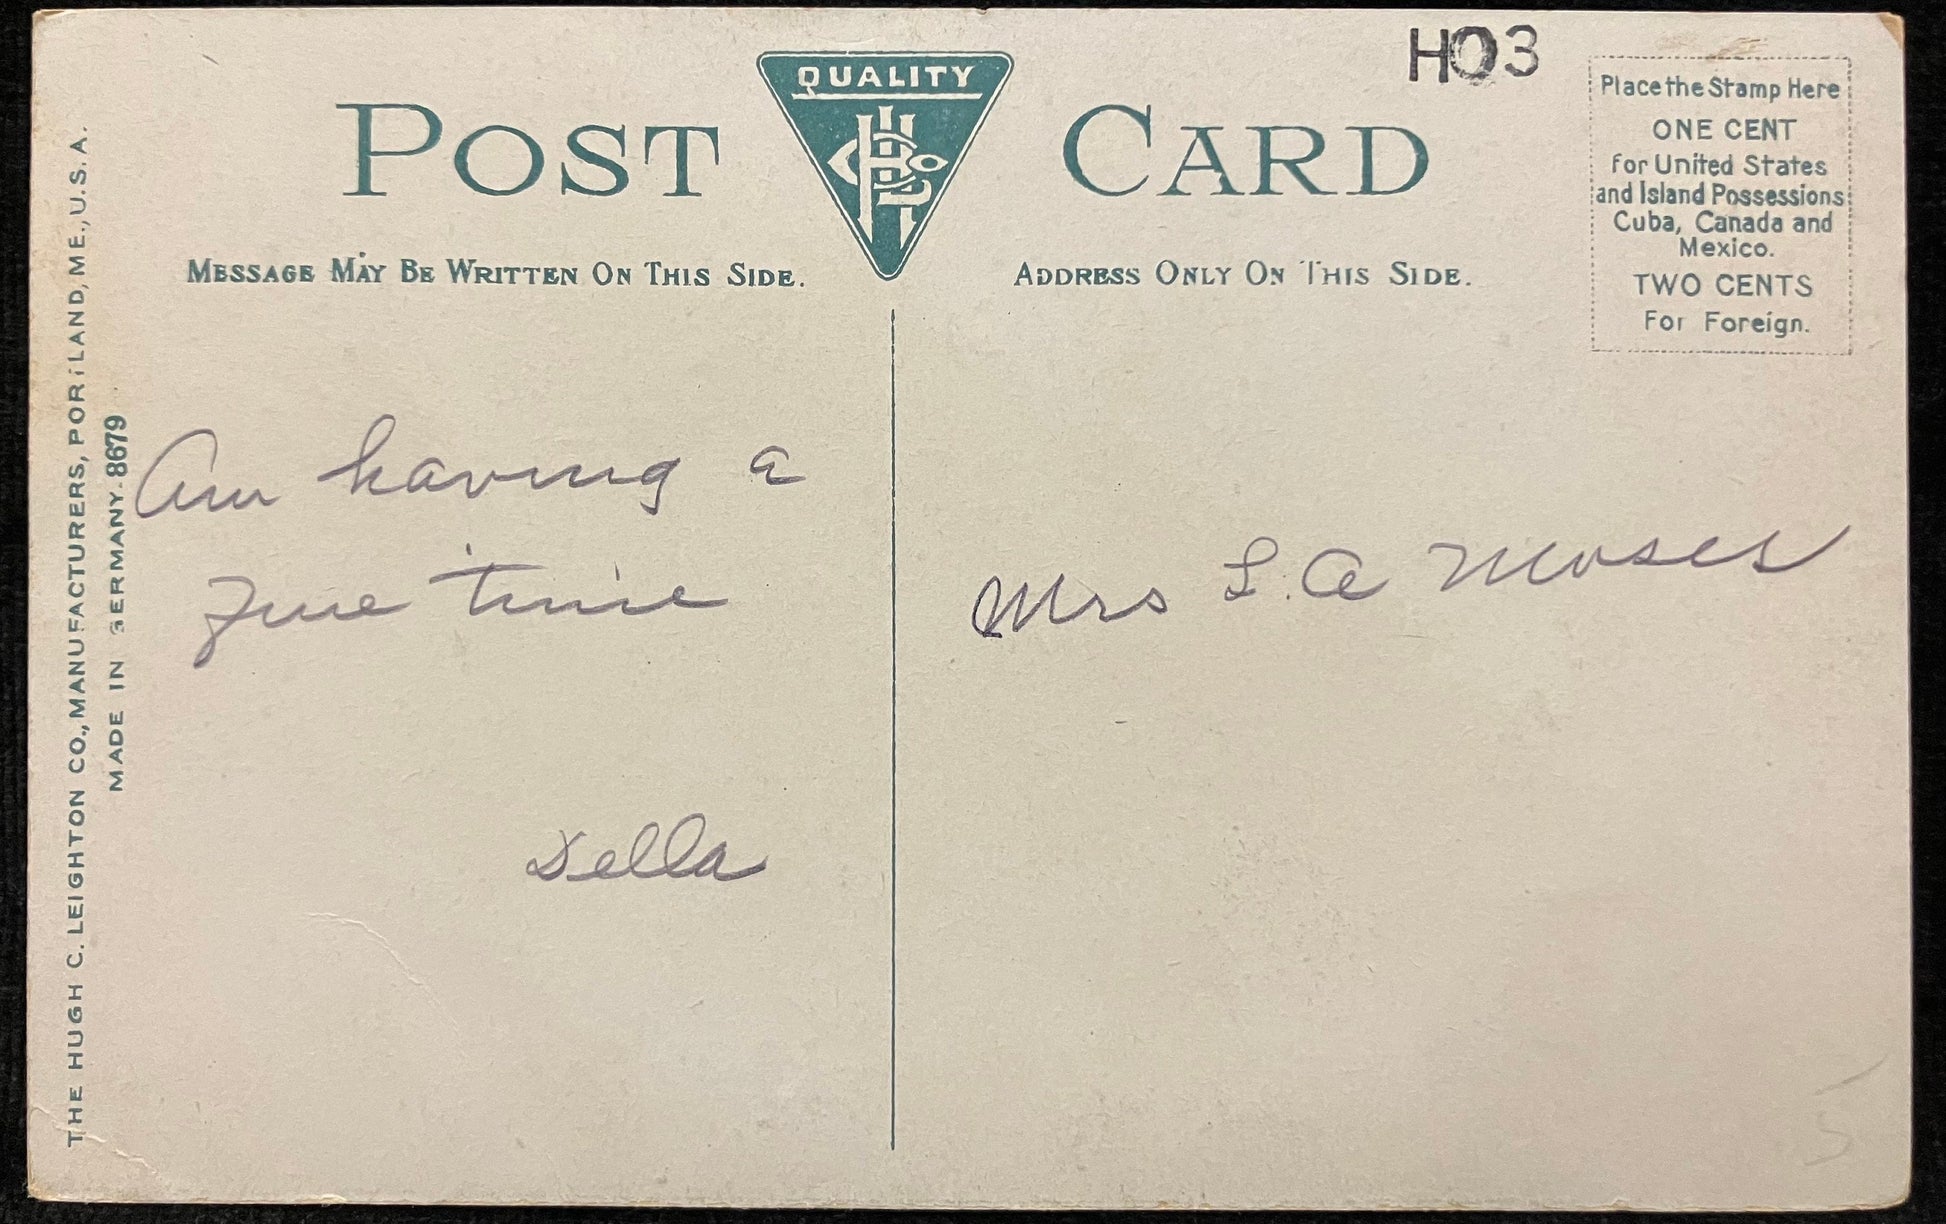 HO3
QUALITY
POST CARD
Place the Stamp Here
ONE CENT
for United States
and Island Possessions
Cuba, Canada and
Mexico.
TWO CENTS
For Foreign.
MESSAGE MAY BE WRITTEN ON THIS SIDE.
ADDRESS ONLY ON THIS SIDE.
THE HUGH C. LEIGHTON CO., MANUFACTURERS, PORTLAND, ME., U.S.A.
MADE IN GERMANY. 8679
Am having a
fine time
Della
Mrs L. A Moses